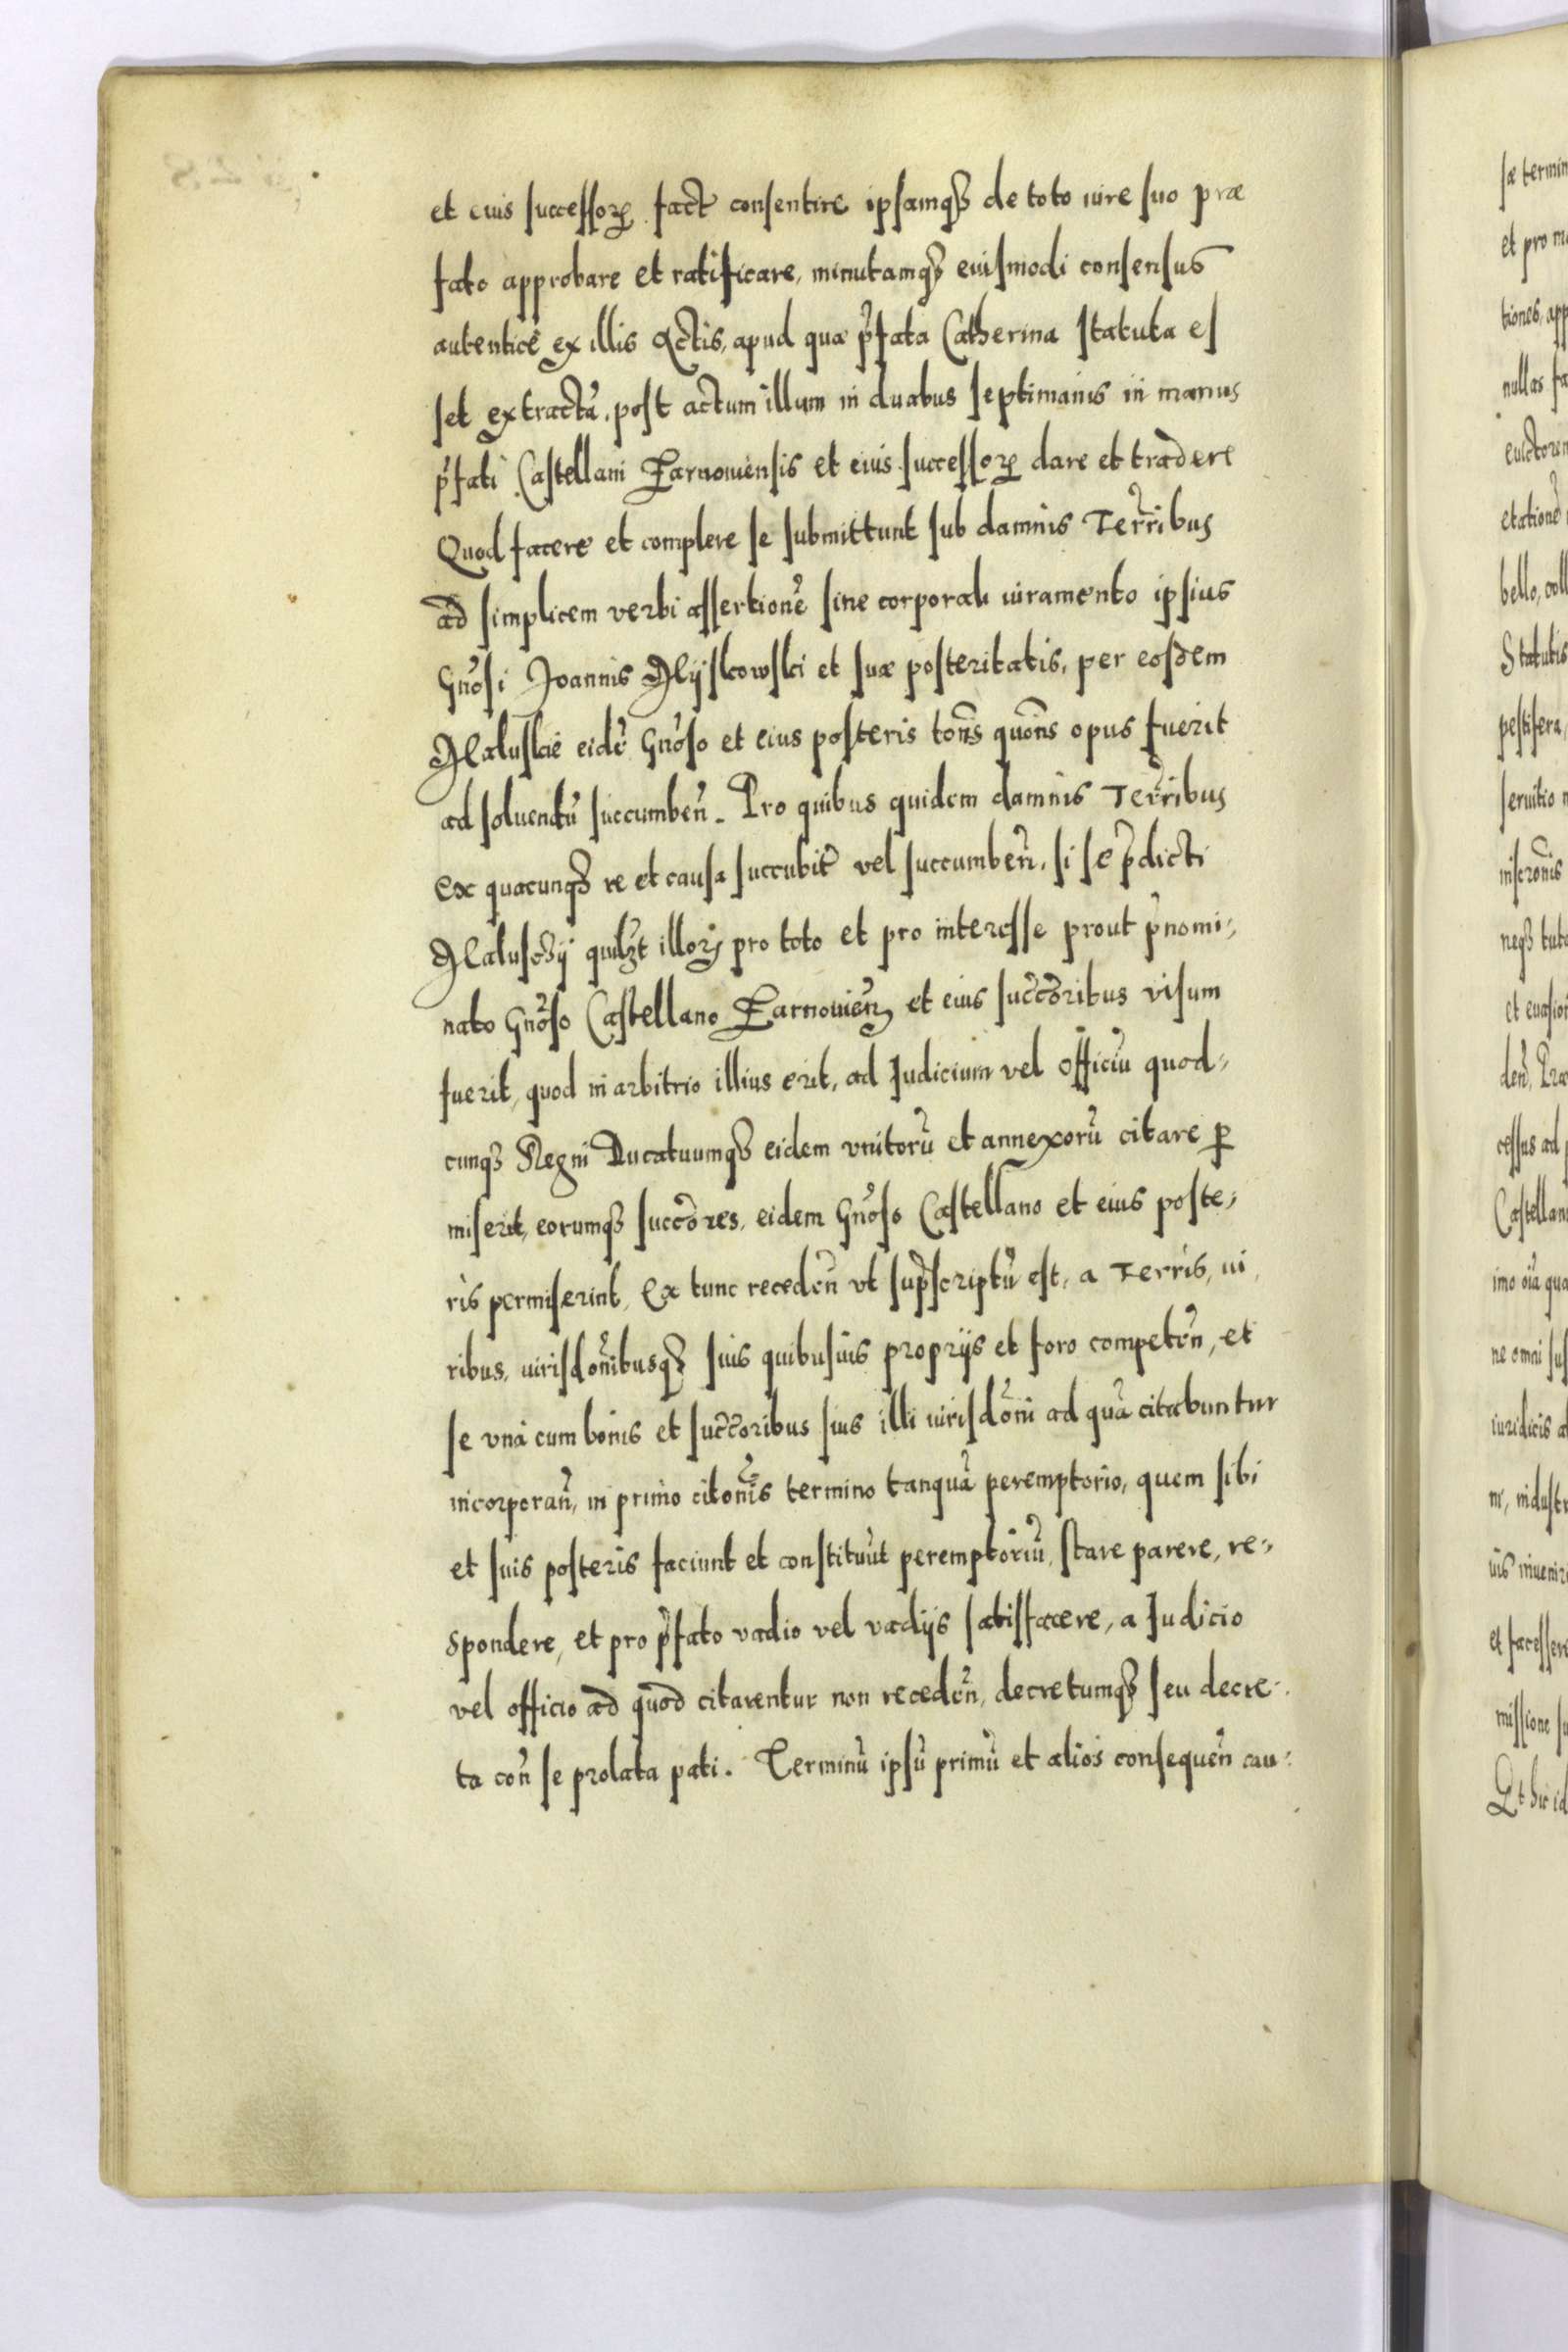 et eius successorꝝ fact consentire ipsamqꝫ de toto iure suo præ
fato approbare et ratificare, minutamqꝫ euismodi consensus
autenticè ex illis Actis, apud quæ p̃fata Catherina statuta es
set extractã, post actum illum in duabus septimanis in manus
p̃fati Castellani Zarnouiensis et eius successorꝝ dare et tradere
Quod facere et complere se submittunt sub damnis Terr̃ibus
ad simplicem verbi assertionẽ sine corporali iuramento ipsius
Gnõsi Joannis Mÿskowski et suæ posteritatis, per eosdem
eidẽ Gnõso et eius posteris tõns quõns opus fuerit
ad soluendũ succumbeñ. Pro quibus quidem damnis Terr̃ibus
ex quacunqꝫ re et causa succubit̃ vel succumbeñ, si se p̃dicti
quilꝫt illorꝝ pro toto et pro interesse prout p̃nomi-
nato Gnõso Castellano Zarnouieñ et eius succc̃oribus visum
fuerit, quod in arbitrio illius erit, ad Judicium vel officiũ quod-
cunqꝫ Regni Ducatuumqꝫ eidem vnitorũ et annexorũ citare ꝑ
miserit, eorumqꝫ succõres, eidem Gnõso Castellano et eius poste-
ris permiserint, Ex tunc recedeñ vt sup̃scriptũ est, a Terris, iu
ribus, iurisdõnibusqꝫ suis quibusuis proprÿs et foro competeñ, et
se vnà cum bonis et succc̃oribus suis illi iurisdõni ad quã citabuntur
incorporañ, in primo citõnis termino tanquã peremptorio, quem sibi
et suis posteris faciunt et constituũt peremptoriũ, stare parere, re-
spondere, et pro p̃fato vadio vel vadÿs satisfacere, a Judicio
vel officio ad quod citarentur non recedeñ, decretumqꝫ seu decre-
ta coñ se prolata pati. Terminũ ipsũ primũ et alios consequeñ cau-
sæ termin
et pro m
tiones, app
nullas fa
euictorem
etationẽ
bello, coll
Statutis
pestifera,
seruitio
inscrõnis
neqꝫ tut
et euasion
deñ, Præ
cessus ad
Castellan
imo oĩa qua
ne omni su
iuridicis a
ni, industr
uis inuenir
et facesser
missione su
Et hic id